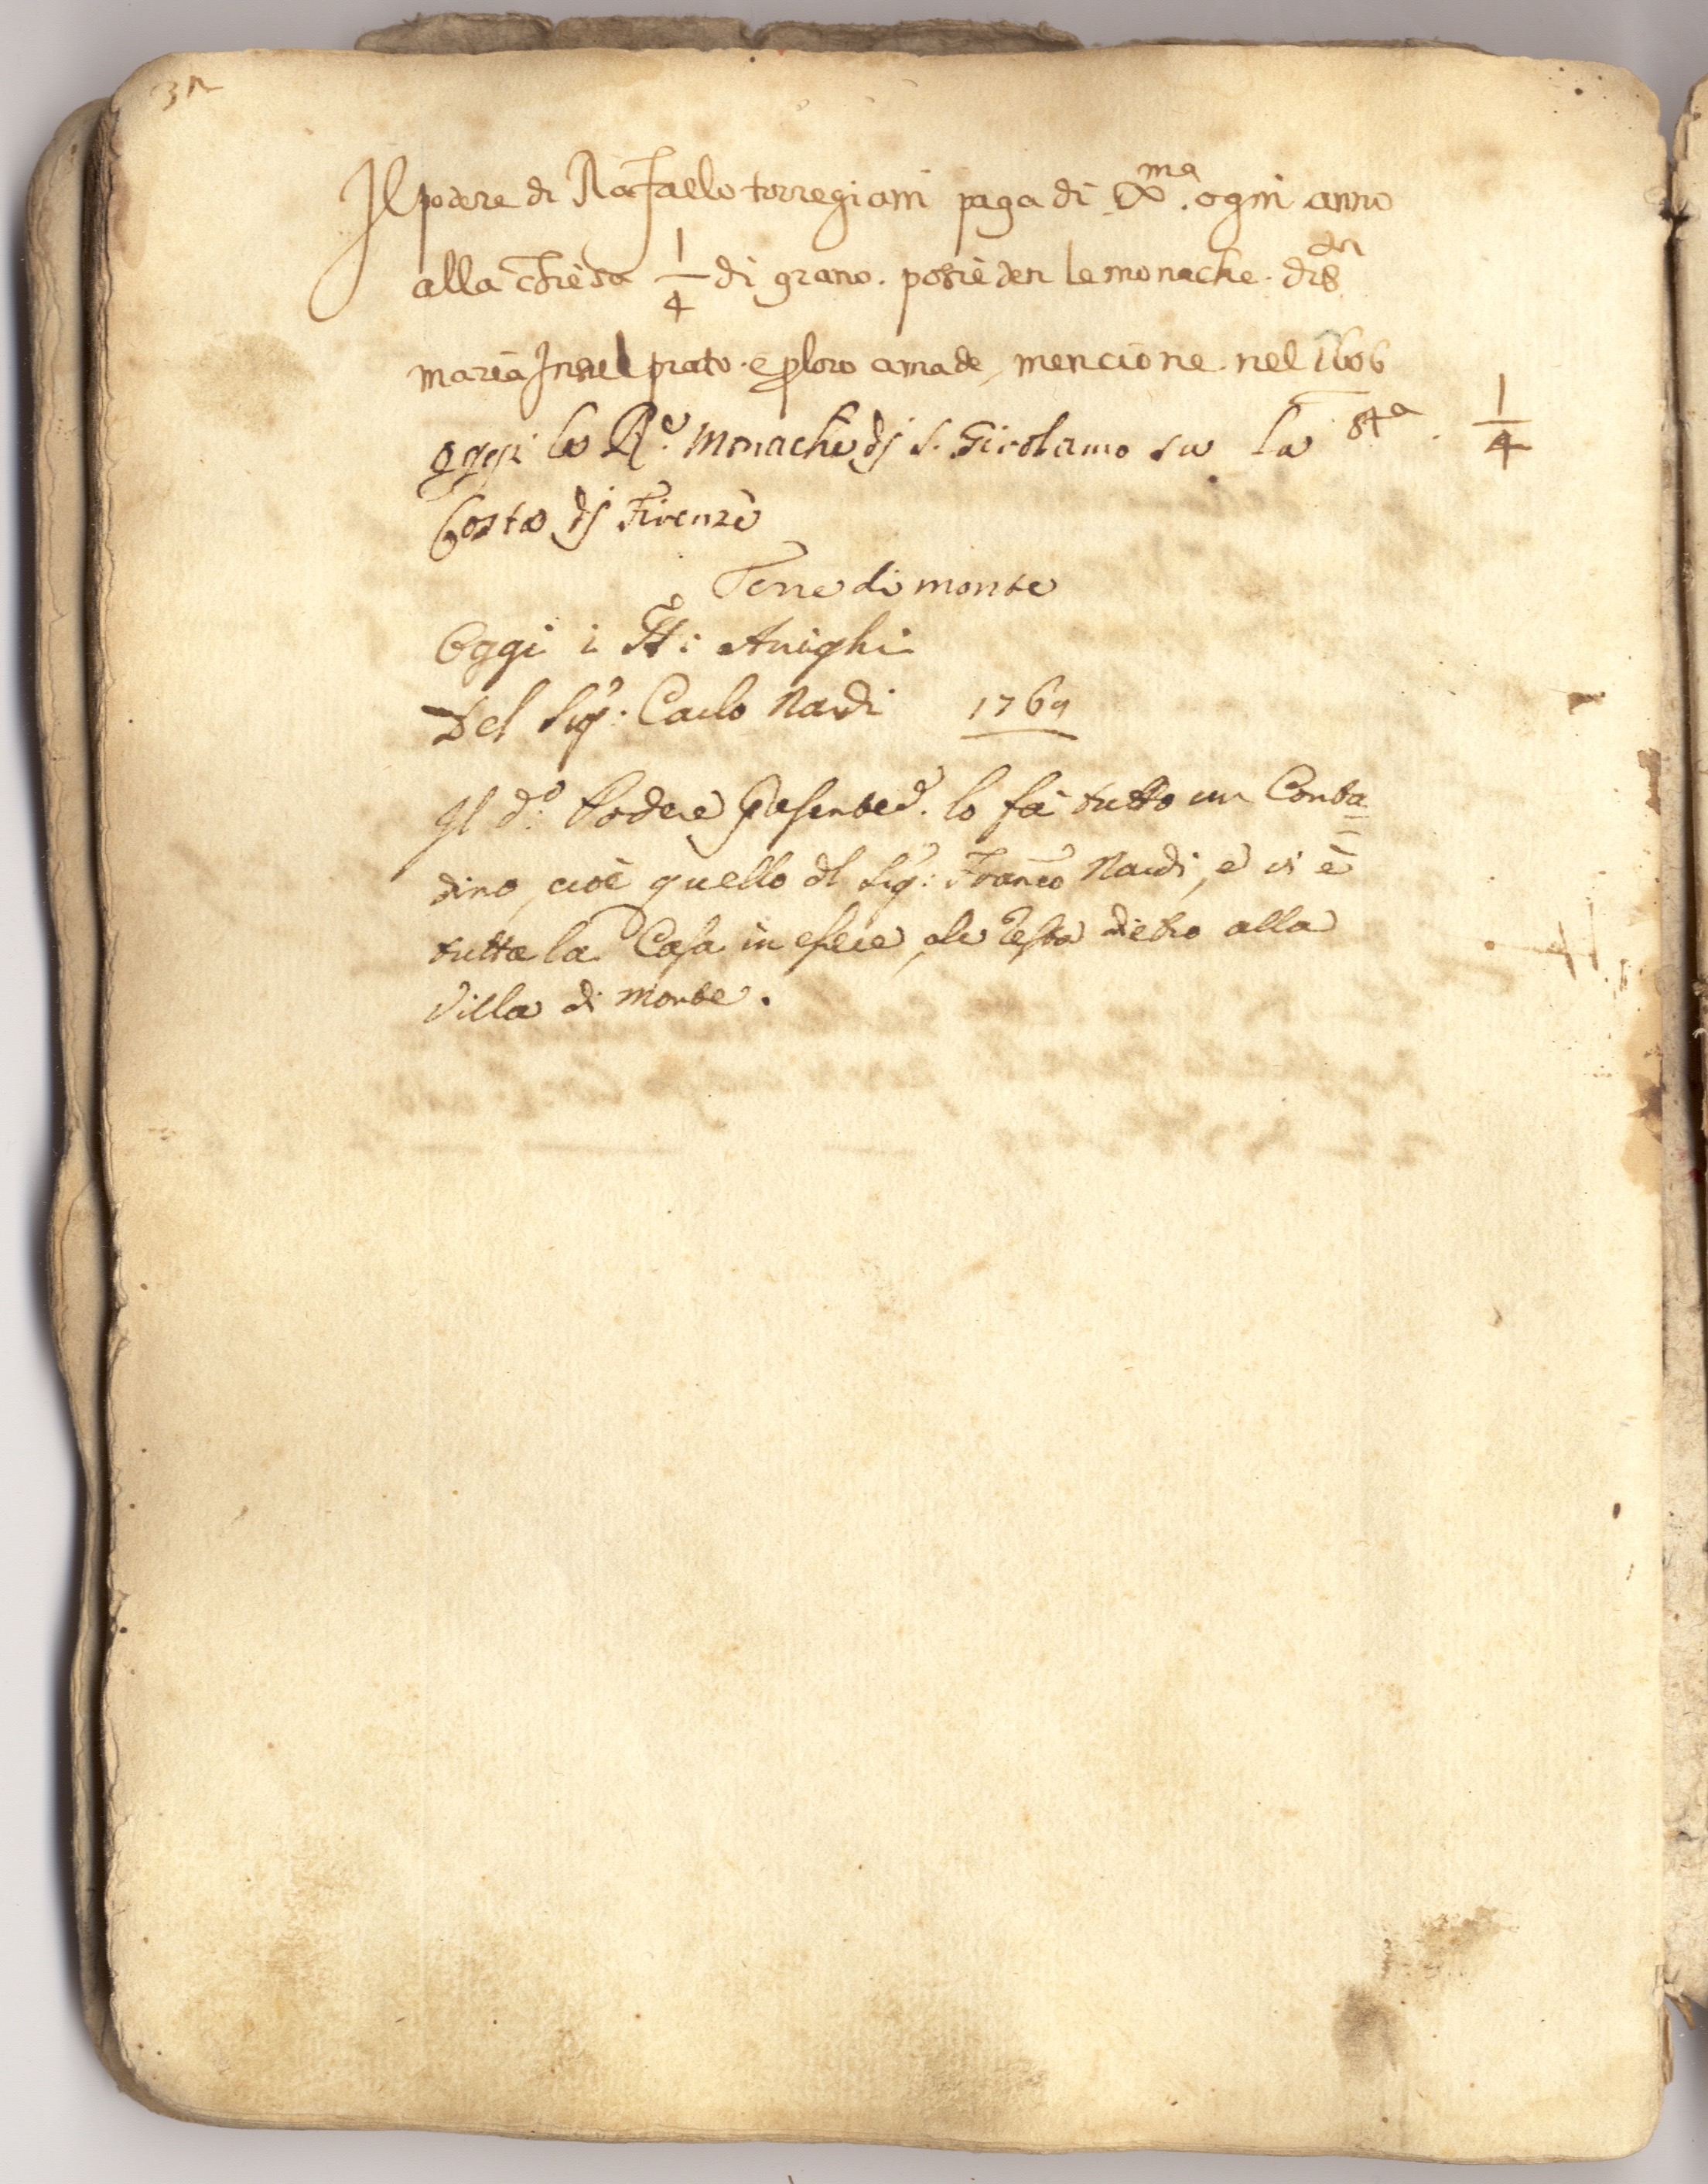 Il podere di Rafaello torregiani paga di Xma. ogni anno
alla chiesa 1/4 di grano. posieden le monache. di sta
maria in sul prato. e p loro amade, mencione. nel 1606
oggi le Re. Monache dj S. Girolamo su la sta. 1/4
Costa dj Firenze
Terre di monte
Oggi i SSri: Arrighi
Del Sigr: Carlo Nardi 1769
Il do. Podere presentee. lo fà tutto un Conta=
dino, cioè quello dl Sigr: Franco Nardi, e vi è
tutta la Casa in essere, che resta dietro alla
Villa di Monte.